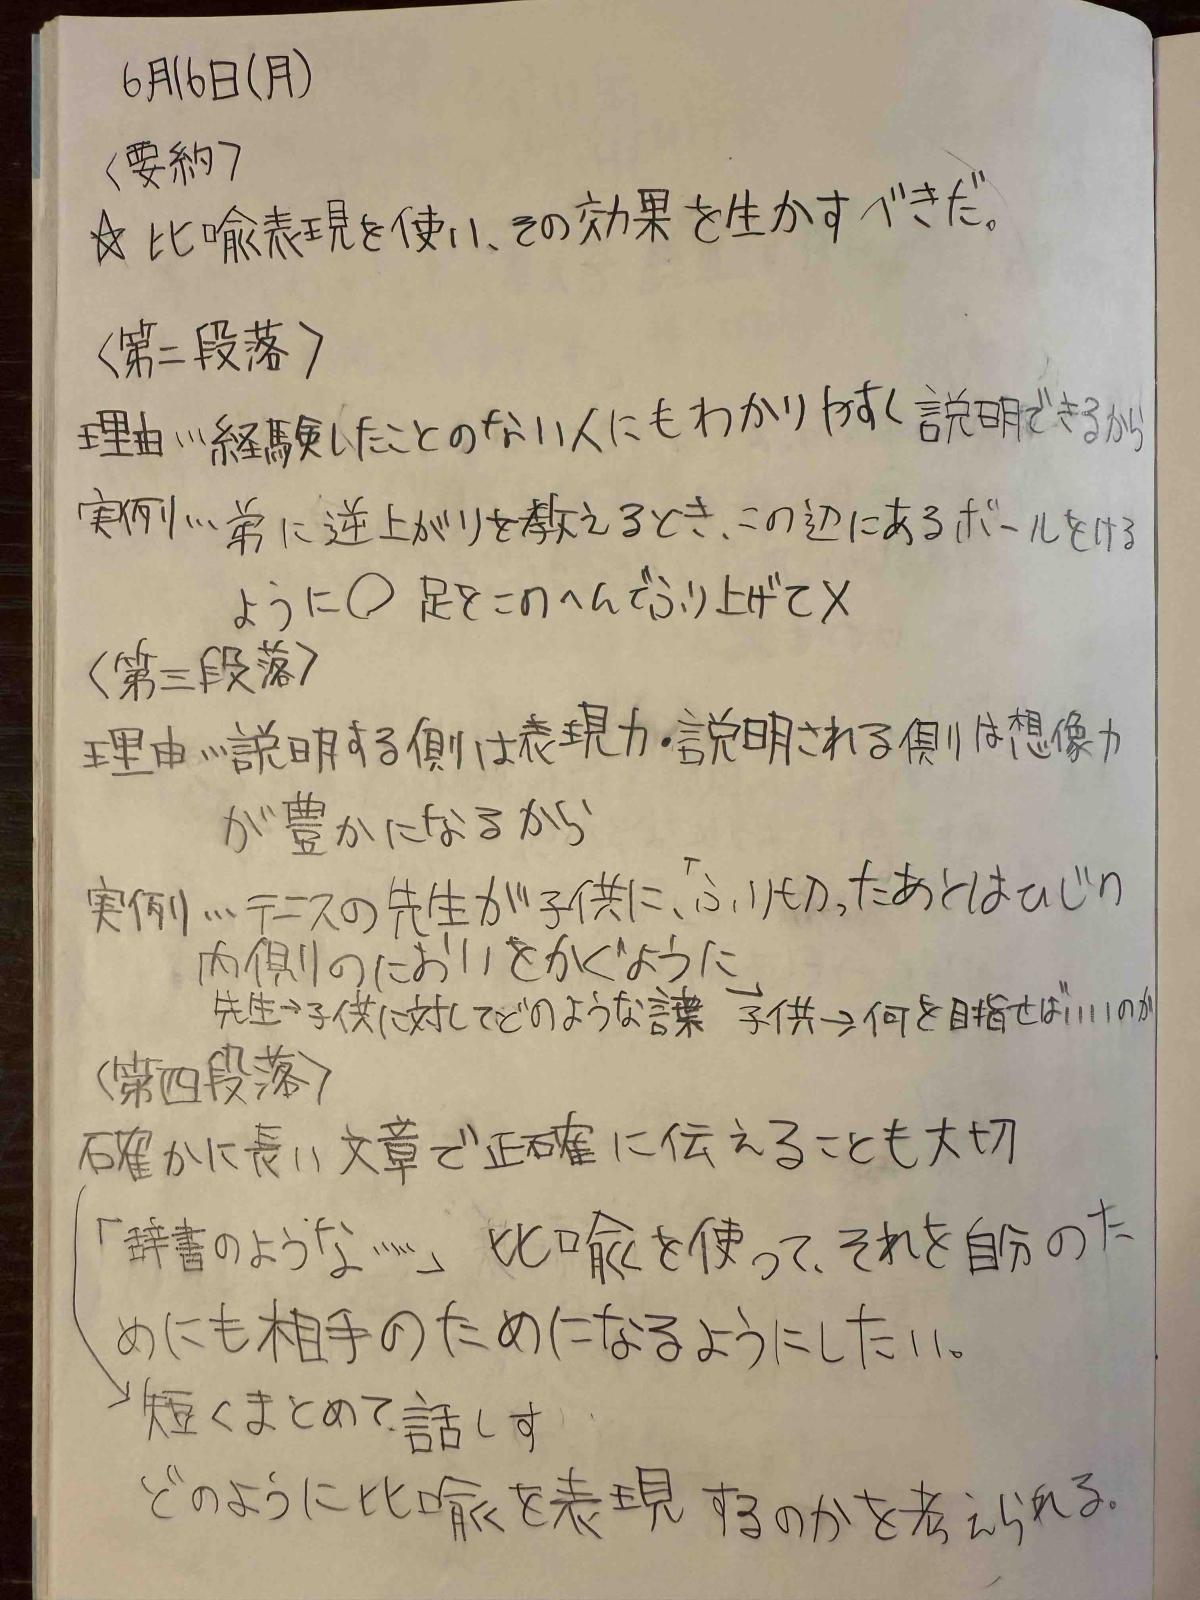 6月16日(月)
〈要約〉
☆ 比喩表現を使い、その効果を生かすべきだ。
〈第二段落〉
理由…経験したことのない人にもわかりやすく説明できるから
実例…弟に逆上がりを教えるとき、この辺にあるボールをける
ように○ 足をこのへんでふり上げて×
〈第三段落〉
理由…説明する側は表現力・説明される側は想像力
が豊かになるから
実例…テニスの先生が子供に、「ふり切ったあとはひじり
内側のにおいをかぐように」
先生→子供に対してどのような言葉 子供→何を目指せばいいのか
〈第四段落〉
確かに長い文章で正確に伝えることも大切
「辞書のような……」 比喩を使って、それを自分のた
めにも相手のためになるようにしたい。
短くまとめて、話しす
どのように比喩を表現するのかを考えられる。